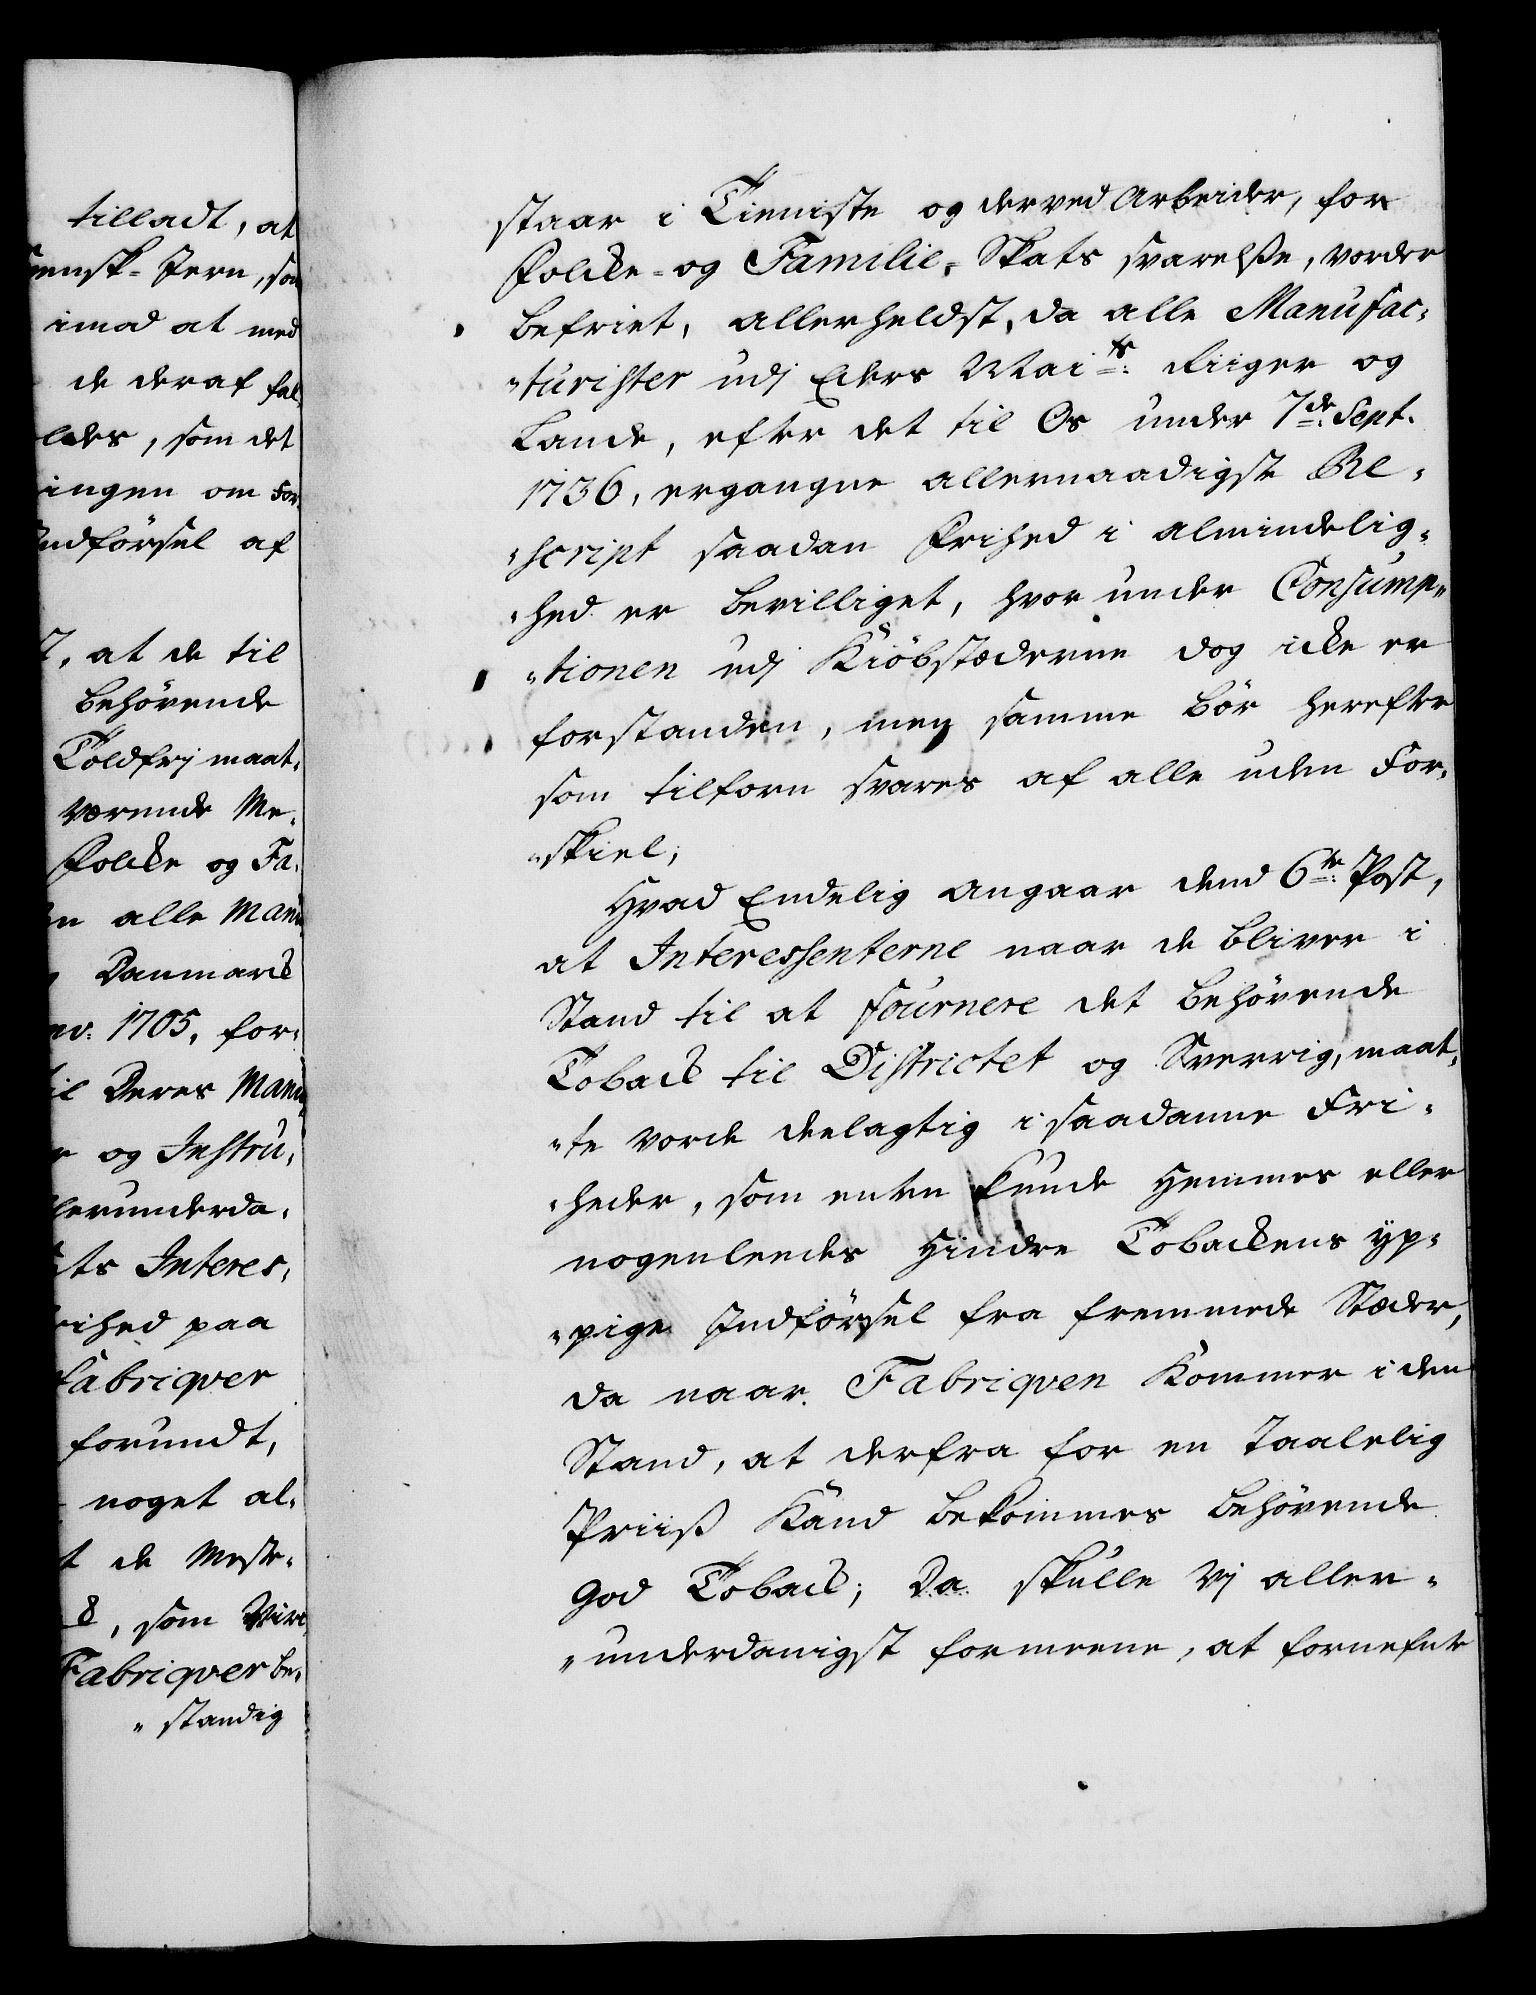 tilladt, at
svensk-Jern, som
imod at med
de deraf fal¬
ledes, som det
ingen om For¬
Indförsel af
7, at de til
behörende
Toldfrj maat¬
værende Me¬
Folcke og Fa¬
alle Manu
Danmarck
1705, for¬
til Deres Manu
og Instru¬
allerunderda¬
Interes¬
Frihed paa
Fabriqver
forundt,
noget al¬
de Meste¬
, som Vire
Fabriqver be¬
"standig
staar i Tieniste og derved Arbeider, for
Folcke- og Familie-Skats svarelße, vorder
befriet, allerheldst, da alle Manufac¬
"turister udj Eders Mai:ts Riiger og
Lande, efter det til Os under 7de: Sept.
1736, ergangne allernaadigste Re¬
"script saadan Frihed i almindelig¬
"hed er bevilliget, hvor under Consump¬
"tionen udj Kiöbstæderne dog icke er
forstanden, men samme bör herefter
som tilforn svares af alle uden For¬
"skiel;
Hvad Endelig angaar dend 6te: Post,
at Interessenterne naar de bliver i
Stand til at fournere det behörende
Toback til Districtet og Sverrig, maat¬
"te vorde deelagtig i saadanne Fri¬
"heder, som enten kunde Hemmes eller
nogenleedes Hindre Tobackens yp¬
"pige Indförsel fra fremmede Stæder,
da naar Fabriqven Kommer i den
Stand, at derfra for en Taalelig
Priiß Kand bekommes behörende
god Toback; Da skulle Vj aller¬
"underdanigst formeene, at fornefnte